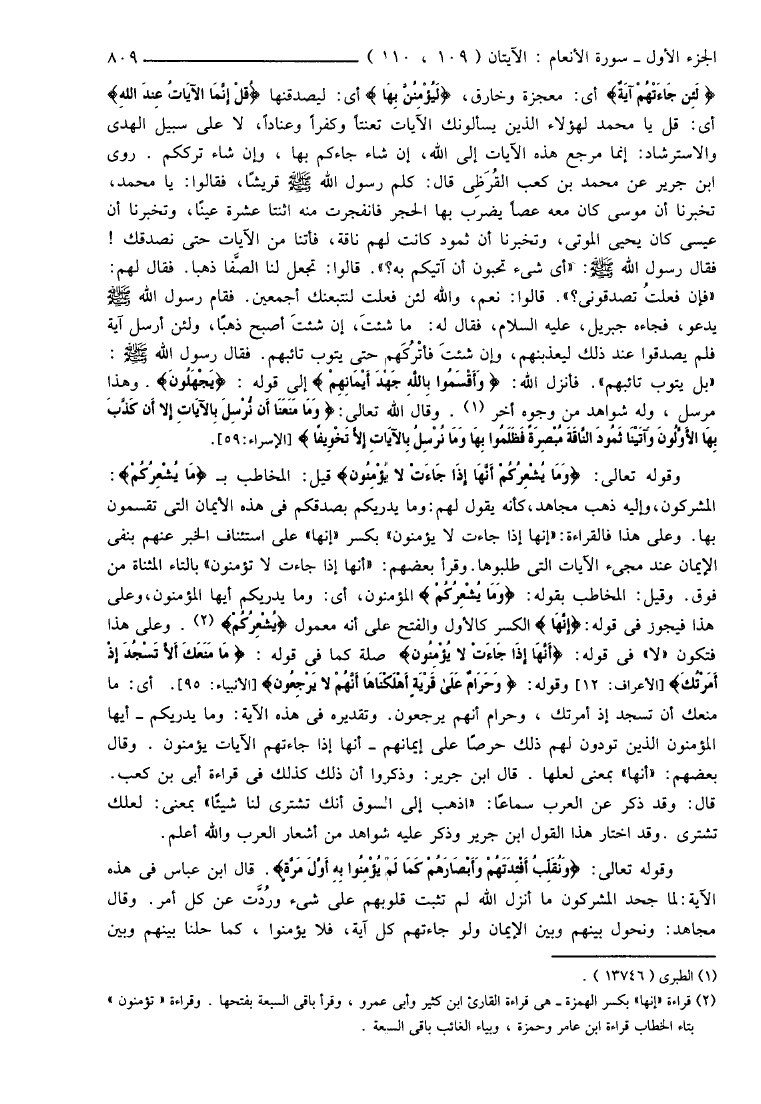 الجزء الأول ـ سورة الأنعام : الآيتان ( ١٠٩ ، ١١٠ ) ــــــــــــــــــــ ٨٠٩
﴿ لَئِن جَاءَتْهُمْ آيَةٌ﴾ أى: معجزة وخارق، ﴿لَيُؤْمِنُنَّ بِهَا ﴾ أى: ليصدقنها ﴿قُلْ إِنَّمَا الآيَاتُ عِندَ اللهِ﴾
أى: قل يا محمد لهؤلاء الذين يسألونك الآيات تعنتاً وكفراً وعناداً، لا على سبيل الهدى
والاسترشاد: إنما مرجع هذه الآيات إلى الله، إن شاء جاءكم بها ، وإن شاء ترككم . روى
ابن جرير عن محمد بن كعب القُرَظِى قال: كلم رسول الله ﷺ قريشًا، فقالوا: يا محمد،
تخبرنا أن موسى كان معه عصاً يضرب بها الحجر فانفجرت منه اثنتا عشرة عينًا، وتخبرنا أن
عيسى كان يحيى الموتى، وتخبرنا أن ثمود كانت لهم ناقة، فأتنا من الآيات حتى نصدقك !
فقال رسول الله ﷺ: «أى شىء تحبون أن آتيكم به؟». قالوا: تجعل لنا الصَّفا ذهبا. فقال لهم:
«فإن فعلتُ تصدقونى؟». قالوا: نعم، والله لئن فعلت لنتبعنك أجمعين. فقام رسول الله ﷺ
يدعو، فجاءه جبريل، عليه السلام، فقال له: ما شئتَ، إن شئتَ أصبح ذهبًا، ولئن أرسل آية
فلم يصدقوا عند ذلك ليعذبنهم، وإن شئتَ فأتْرُكَهم حتى يتوب تائبهم. فقال رسول الله ﷺ :
«بل يتوب تائبهم». فأنزل الله: ﴿ وَأَقْسَمُوا بِاللَّهِ جَهْدَ أَيْمَانِهِمْ ﴾ إلى قوله : ﴿يَجْهَلُونَ﴾ . وهذا
مرسل ، وله شواهد من وجوه أخر (١) . وقال الله تعالى:﴿ وَمَا مَنَعَنَا أَن نُّرْسِلَ بِالآيَاتِ إِلا أَن كَذَّبَ
بِهَا الأَوَّلُونَ وَآتَيْنَا ثَمُودَ النَّاقَةَ مُبْصِرَةً فَظَلَمُوا بِهَا وَمَا نُرْسِلُ بِالآيَاتِ إِلاَّ تَخْوِيفًا ﴾ [الإسراء:٥٩].
وقوله تعالى: ﴿وَمَا يُشْعِرُكُمْ أَنَّهَا إِذَا جَاءَتْ لا يُؤْمِنُون﴾ قيل: المخاطب بـ ﴿مَا يُشْعِرُكُمْ﴾:
المشركون،وإليه ذهب مجاهد،كأنه يقول لهم:وما يدريكم بصدقكم فى هذه الأيمان التى تقسمون
بها. وعلى هذا فالقراءة:«إنها إذا جاءت لا يؤمنون» بكسر «إنها» على استئناف الخبر عنهم بنفى
الإيمان عند مجىء الآيات التى طلبوها.وقرأ بعضهم: «أنها إذا جاءت لا تؤمنون» بالتاء المثناة من
فوق. وقيل: المخاطب بقوله: ﴿وَمَا يُشْعِرُكُمْ ﴾ المؤمنون، أى: وما يدريكم أيها المؤمنون،وعلى
هذا فيجوز فى قوله:﴿إِنَّهَا ﴾ الكسر كالأول والفتح على أنه معمول ﴿يُشْعِرُكُمْ﴾ (٢) . وعلى هذا
فتكون «لا» فى قوله: ﴿أَنَّهَا إِذَا جَاءَتْ لا يُؤْمِنُونَ﴾ صلة كما فى قوله : ﴿ مَا مَنَعَكَ أَلاَّ تَسْجُدَ إِذْ
أَمَرْتُكَ﴾ [الأعراف: ١٢] وقوله: ﴿ وَحَرَامٌ عَلَىٰ قَرْيَةٍ أَهْلَكْنَاهَا أَنَّهُمْ لا يَرْجِعُون﴾ [الأنبياء: ٩٥]. أى: ما
منعك أن تسجد إذ أمرتك ، وحرام أنهم يرجعون. وتقديره فى هذه الآية: وما يدريكم ـ أيها
المؤمنون الذين تودون لهم ذلك حرصًا على إيمانهم ـ أنها إذا جاءتهم الآيات يؤمنون . وقال
بعضهم: «أنها» بمعنى لعلها . قال ابن جرير: وذكروا أن ذلك كذلك فى قراءة أبى بن كعب.
قال: وقد ذكر عن العرب سماعًا: «اذهب إلى السوق أنك تشترى لنا شيئًا» بمعنى: لعلك
تشترى .وقد اختار هذا القول ابن جرير وذكر عليه شواهد من أشعار العرب والله أعلم.
وقوله تعالى: ﴿وَنُقَلِّبُ أَفْئِدَتَهُمْ وَأَبْصَارَهُمْ كَمَا لَمْ يُؤْمِنُوا بِهِ أَوَّلَ مَرَّةٍ﴾. قال ابن عباس فى هذه
الآية:لما جحد المشركون ما أنزل الله لم تثبت قلوبهم على شىء ورُدَّت عن كل أمر. وقال
مجاهد: ونحول بينهم وبين الإيمان ولو جاءتهم كل آية، فلا يؤمنوا ، كما حلنا بينهم وبين
(١) الطبرى ( ١٣٧٤٦ ) .
(٢) قراءة «إنها» بكسر الهمزة ـ هى قراءة القارئ ابن كثير وأبى عمرو ، وقرأ باقى السبعة بفتحها . وقراءة « تؤمنون »
بتاء الخطاب قراءة ابن عامر وحمزة ، وبياء الغائب باقى السبعة .